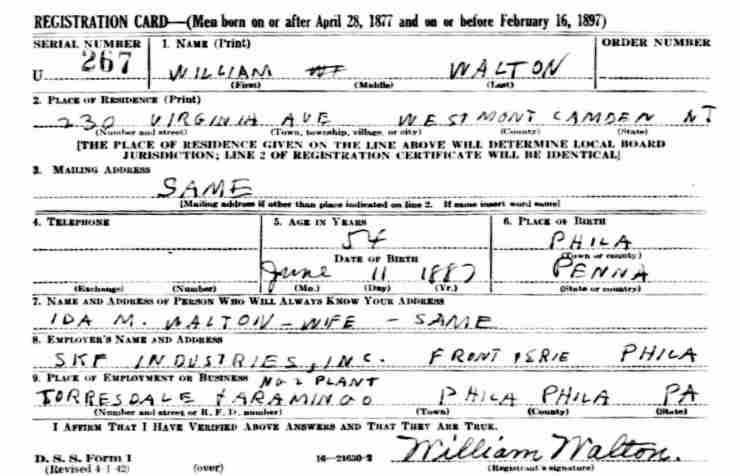 REGISTRATION CARD—(Men born on or after April 28, 1877 and on or before February 16, 1897)
SERIAL NUMBER 1. NAME (Print) ORDER NUMBER
U 267 WILLIAM WALTON
(First) (Middle) (Last)
2. PLACE OF RESIDENCE (Print)
230 VIRGINIA AVE WESTMONT CAMDEN NJ
(Number and street) (Town, township, village, or city) (County) (State)
[THE PLACE OF RESIDENCE GIVEN ON THE LINE ABOVE WILL DETERMINE LOCAL BOARD
JURISDICTION; LINE 2 OF REGISTRATION CERTIFICATE WILL BE IDENTICAL]
3. MAILING ADDRESS
SAME
[Mailing address if other than place indicated on line 2. If same insert word same]
4. TELEPHONE 5. AGE IN YEARS 6. PLACE OF BIRTH
54 PHILA
DATE OF BIRTH (Town or county)
June 11 1887 PENNA
(Exchange) (Number) (Mo.) (Day) (Yr.) (State or country)
7. NAME AND ADDRESS OF PERSON WHO WILL ALWAYS KNOW YOUR ADDRESS
IDA M. WALTON - WIFE - SAME
8. EMPLOYER'S NAME AND ADDRESS
SKF INDUSTRIES, INC. FRONT & ERIE PHILA
9. PLACE OF EMPLOYMENT OR BUSINESS NO 2 PLANT
TORRESDALE & ARAMINGO PHILA PHILA PA
(Number and street or R. F. D. number) (Town) (County) (State)
I AFFIRM THAT I HAVE VERIFIED ABOVE ANSWERS AND THAT THEY ARE TRUE.
D. S. S. Form 1 William Walton.
(Revised 4-1-42) (over) 16—21630-2 (Registrant's signature)